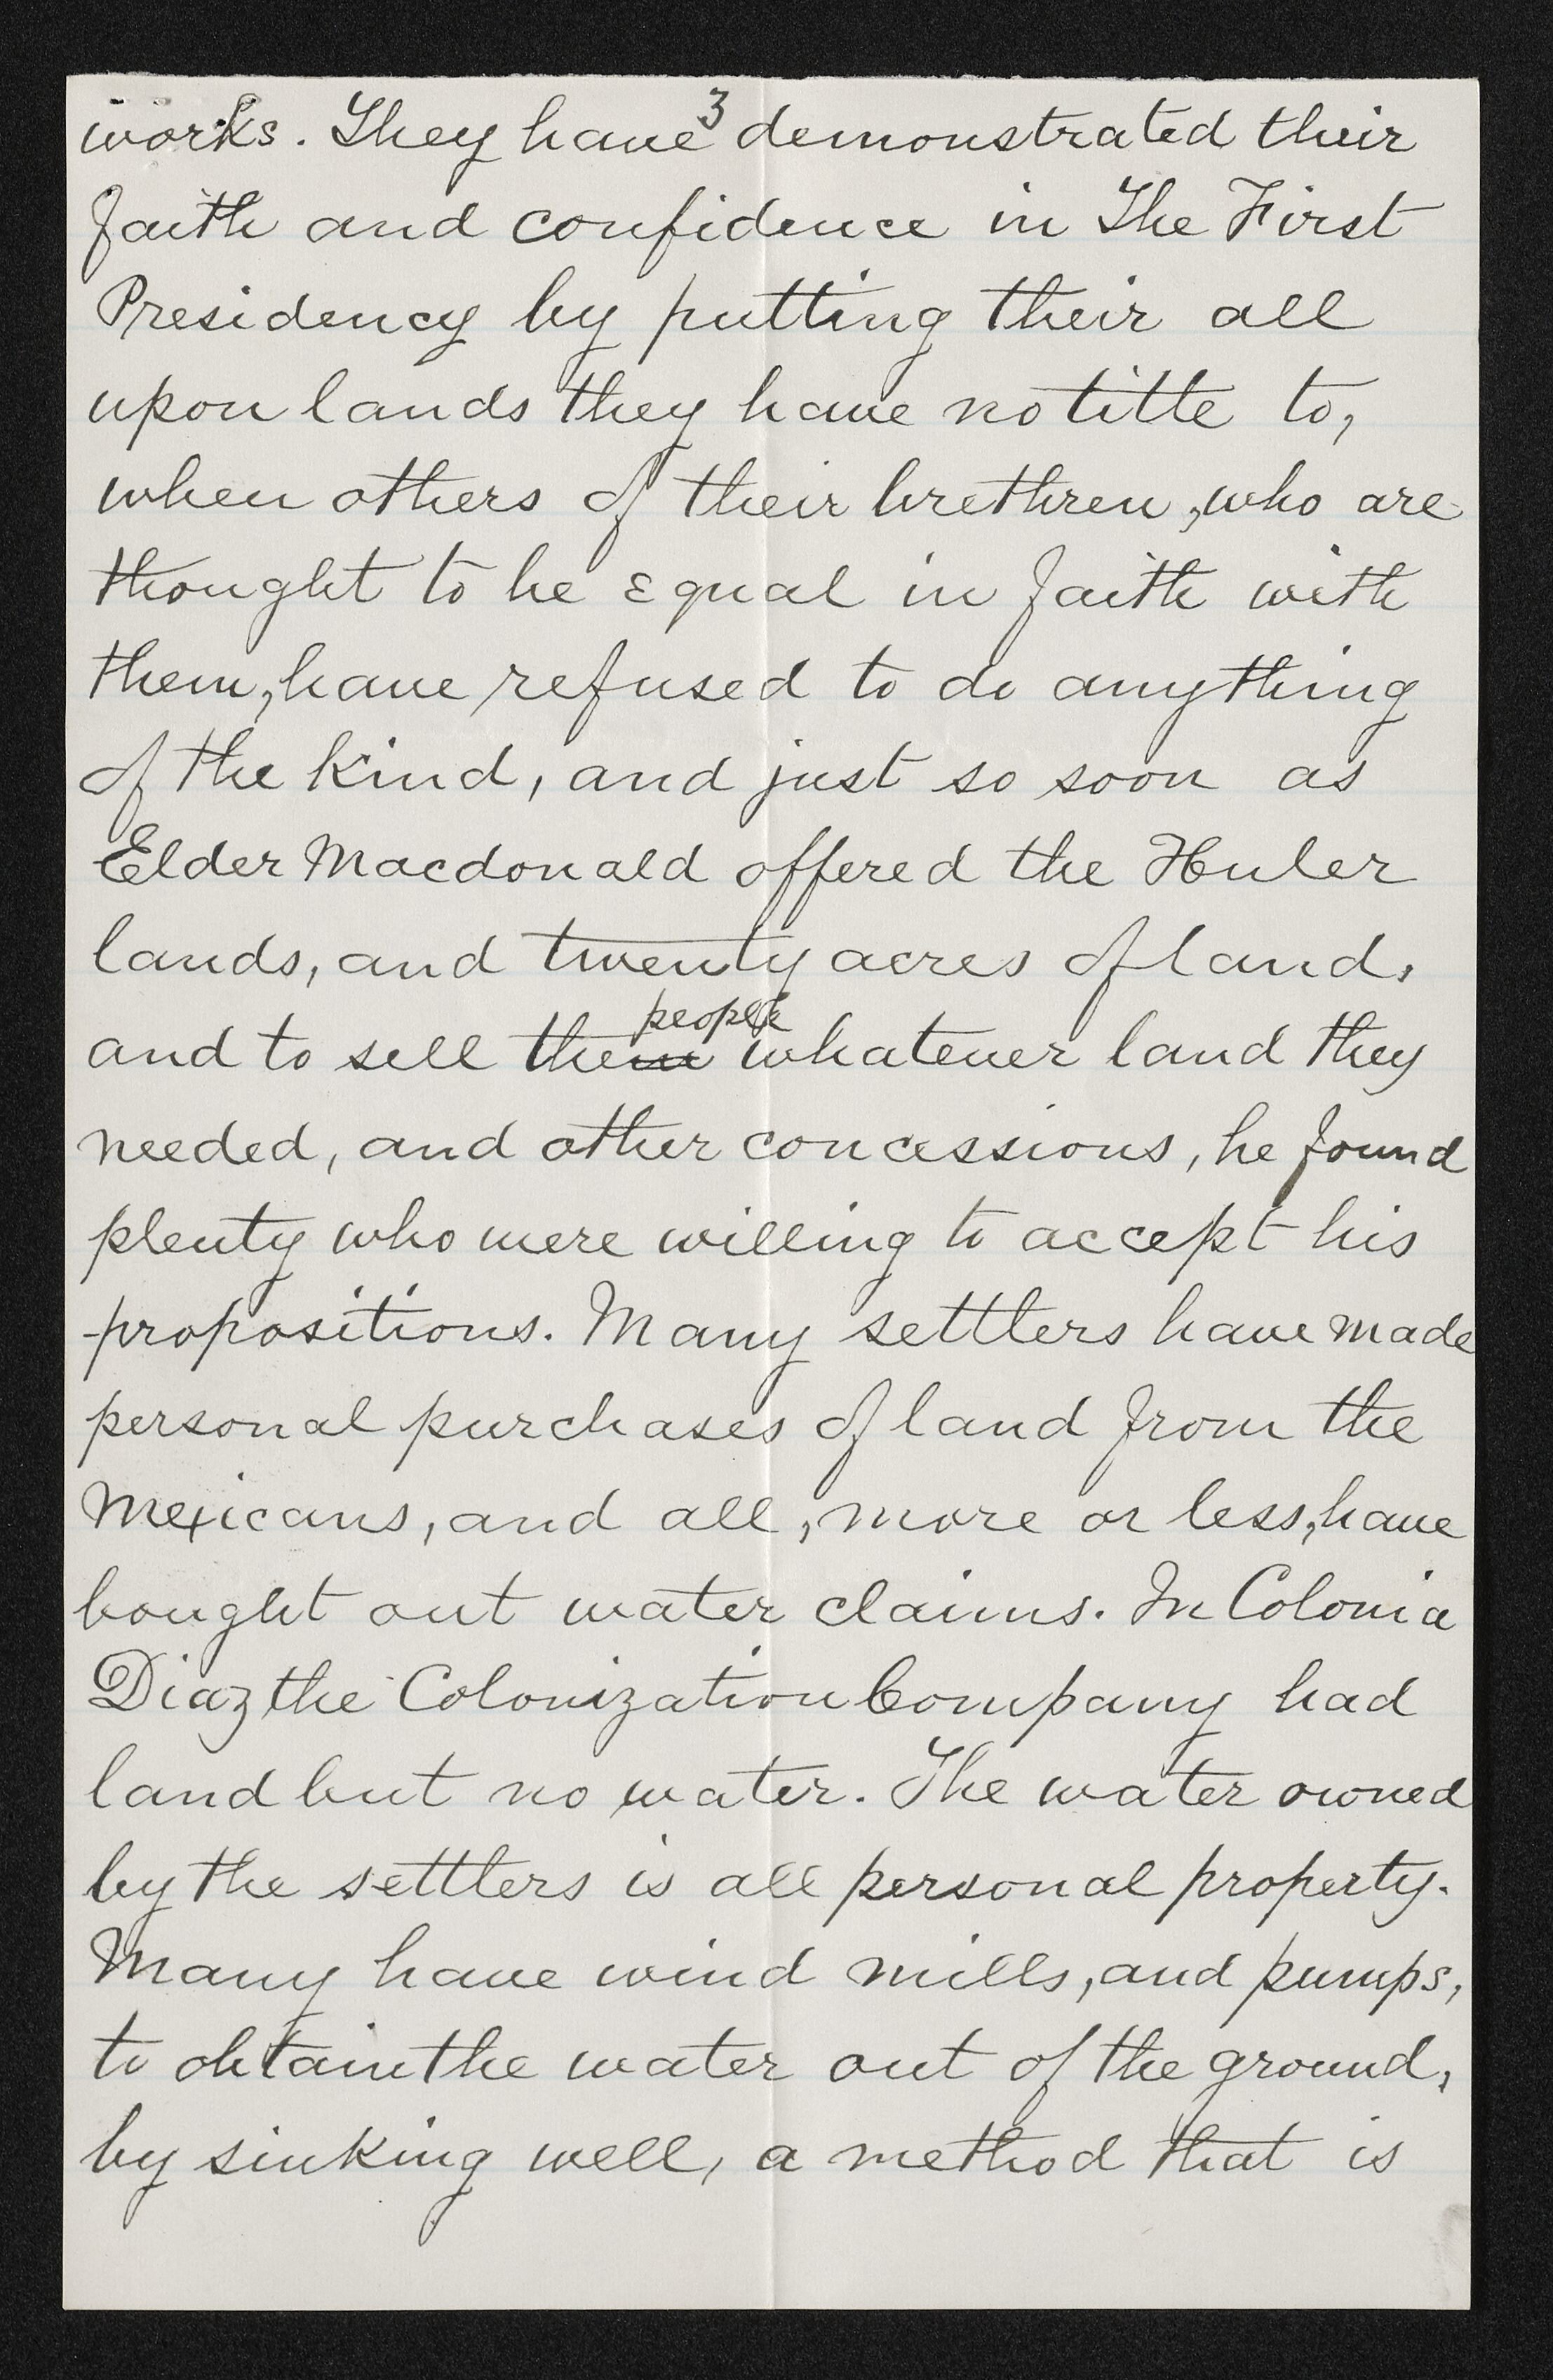 3
works. They have demonstrated their
faith and confidence in The First
Presidency by putting their all
upon lands they have no title to,
when others of their brethren, who are
thought to be equal in faith with
them, have refused to do anything
of the kind, and just so soon as
Elder Macdonald offered the Huler
lands, and twenty acres of land,
people
and to sell them whatever land they
needed, and other concessions, he found
plenty who were willing to accept his
propositions. Many settlers have made
personal purchases of land from the
Mexicans, and all, more or less, have
bought out water claims. In Colonia
Diaz the Colonization Company had
land but no water. The water owned
by the settlers is all personal property.
Many have wind mills, and pumps,
to obtain the water out of the ground,
by sinking well, a method that is